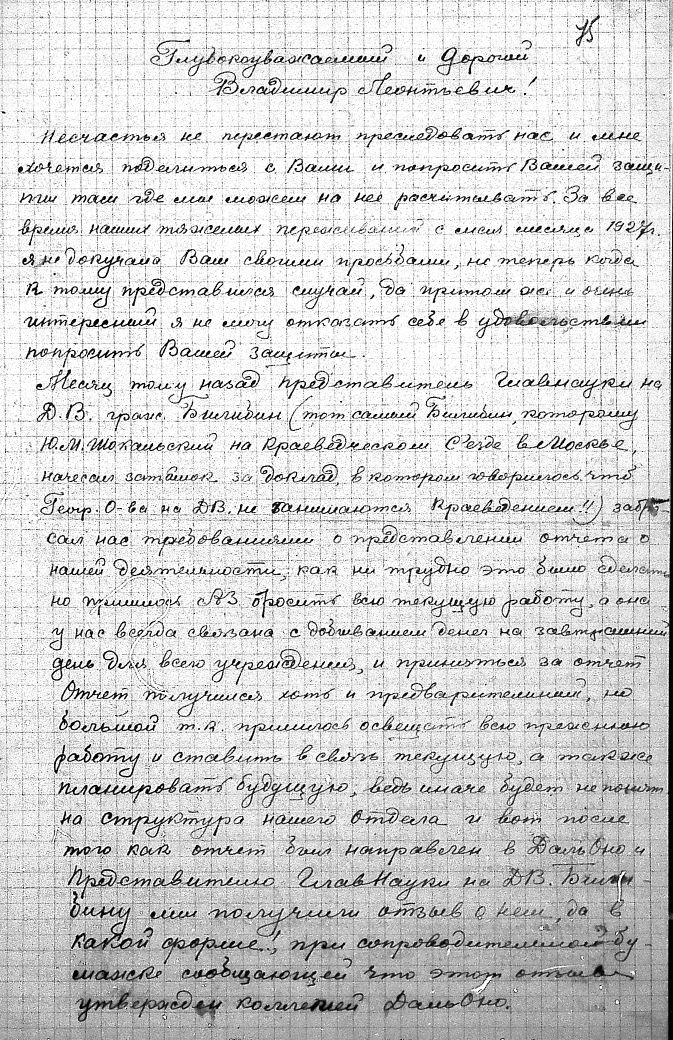 75
Глубокоуважаемый и Дорогой
Владимир Леонтьевич!
Несчастья не перестают преследовать нас и мне
хочется поделиться с Вами и попросить Вашей защи-
ты там где мы можем на нее расчитывать. За все
время наших тяжелых переживаний с мая месяца 1927г.
я не докучала Вам своими просьбами, но теперь когда
к тому представился случай, да притом и очень
интересный я не могу отказать себе в удовольствии
попросить Вашей защиты.
Месяц тому назад представитель Главнауки на
Д.В. граж. Билибин (тот самый Билибин, которому
Ю.М. Шокальский на Краеведческом С'езде в Москве,
начесал затылок за доклад, в котором говорилось что
Геогр. О-ва на ДВ. не занимаются Краеведением!!) забро-
сал нас требованиями о представлении отчета о
нашей деятельности, как ни трудно это было сделать
но пришлось АЗ. бросить всю текущую работу, а она
у нас всегда связана с добыванием денег на завтрашний
день для всего учреждения, и приняться за отчет
Отчет получился хоть и предварительный, но
большой т.к. пришлось освещать всю прежнюю
работу и ставить в связь текущую, а также
планировать будущую, ведь иначе будет не понят-
на структура нашего Отдела и вот после
того как отчет был направлен в ДальОно и
Представителю ГлавНауки на ДВ. Били-
бину мы получили отзыв о нем, да в
какой форме!, при сопроводительной бу-
мажке сообщающей что этот отзыв
утвержден коллегией ДальОно.